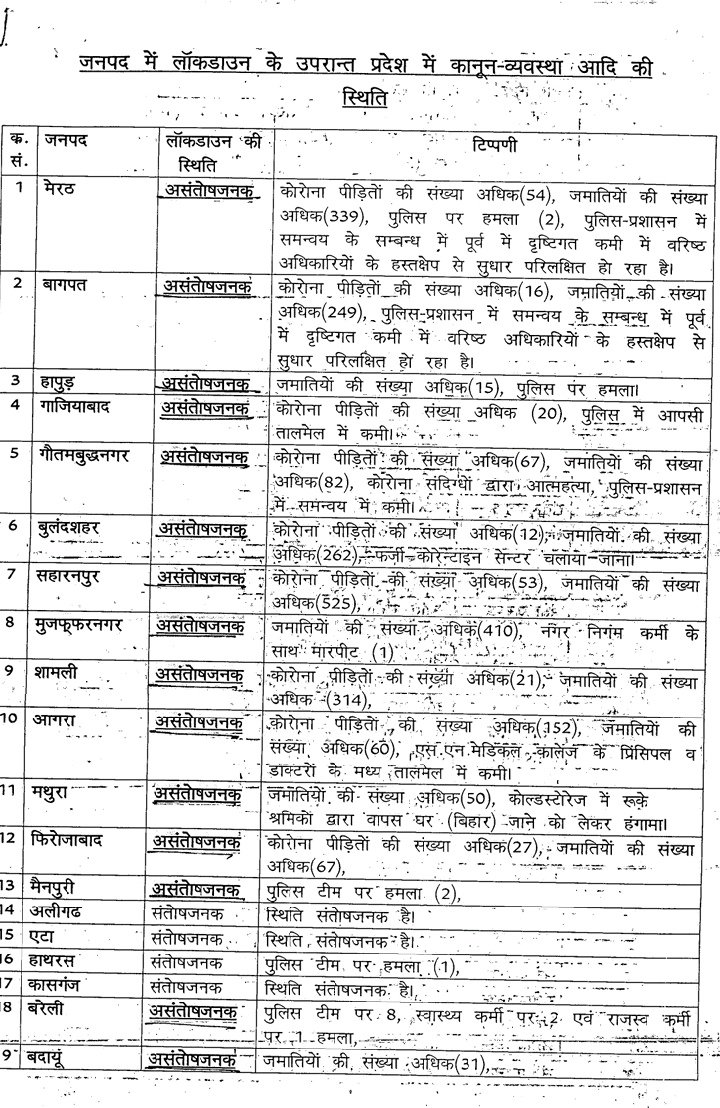 जनपद में लॉकडाउन के उपरान्त प्रदेश में कानून-व्यवस्था आदि की
स्थिति
क. सं. जनपद लॉकडाउन की स्थिति टिप्पणी
1 मेरठ असंतोषजनक कोरोना पीड़ितों की संख्या अधिक(54), जमातियों की संख्या
अधिक(339), पुलिस पर हमला (2), पुलिस-प्रशासन में
समन्वय के सम्बन्ध में पूर्व में दृष्टिगत कमी में वरिष्ठ
अधिकारियों के हस्तक्षेप से सुधार परिलक्षित हो रहा है।
2 बागपत असंतोषजनक कोरोना पीड़ितों की संख्या अधिक(16), जमातियों की संख्या
अधिक(249), पुलिस-प्रशासन में समन्वय के सम्बन्ध में पूर्व
में दृष्टिगत कमी में वरिष्ठ अधिकारियों के हस्तक्षेप से
सुधार परिलक्षित हो रहा है।
3 हापुड़ असंतोषजनक जमातियों की संख्या अधिक(15), पुलिस पर हमला।
4 गाजियाबाद असंतोषजनक कोरोना पीड़ितों की संख्या अधिक (20), पुलिस में आपसी
तालमेल में कमी।
5 गौतमबुद्धनगर असंतोषजनक कोरोना पीड़ितों की संख्या अधिक(67), जमातियों की संख्या
अधिक(82), कोरोना संदिग्धों द्वारा आत्महत्या, पुलिस-प्रशासन
में समन्वय में कमी।
6 बुलंदशहर असंतोषजनक कोरोना पीड़ितों की संख्या अधिक(12), जमातियों की संख्या
अधिक(262), फर्जी कोरेन्टाइन सेन्टर चलाया जाना।
7 सहारनपुर असंतोषजनक कोरोना पीड़ितों की संख्या अधिक(53), जमातियों की संख्या
अधिक(525),
8 मुजफ्फरनगर असंतोषजनक जमातियों की संख्या अधिक(410), नगर निगम कर्मी के
साथ मारपीट (1)
9 शामली असंतोषजनक कोरोना पीड़ितों की संख्या अधिक(21), जमातियों की संख्या
अधिक (314),
10 आगरा असंतोषजनक कोरोना पीड़ितों की संख्या अधिक(152), जमातियों की
संख्या अधिक(60), एस.एन.मेडिकल कालेज के प्रिंसिपल व
डाक्टरों के मध्य तालमेल में कमी।
11 मथुरा असंतोषजनक जमातियों की संख्या अधिक(50), कोल्डस्टोरेज में रूके
श्रमिकों द्वारा वापस घर (बिहार) जाने को लेकर हंगामा।
12 फिरोजाबाद असंतोषजनक कोरोना पीड़ितों की संख्या अधिक(27), जमातियों की संख्या
अधिक(67),
13 मैनपुरी असंतोषजनक पुलिस टीम पर हमला (2),
14 अलीगढ संतोषजनक स्थिति संतोषजनक है।
15 एटा संतोषजनक स्थिति संतोषजनक है।
16 हाथरस संतोषजनक पुलिस टीम पर हमला (1),
17 कासगंज संतोषजनक स्थिति संतोषजनक है।
18 बरेली असंतोषजनक पुलिस टीम पर 8, स्वास्थ्य कर्मी पर 2 एवं राजस्व कर्मी
पर 1 हमला,
9 बदायूं असंतोषजनक जमातियों की संख्या अधिक(31),